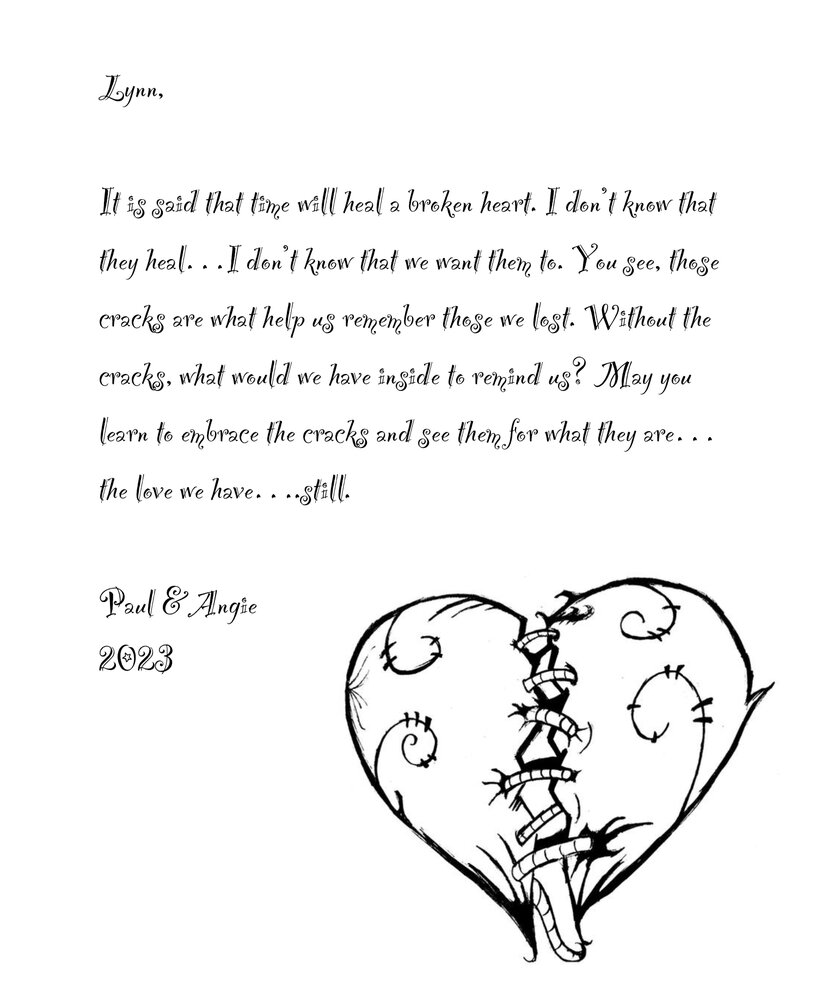 Lynn,
It is said that time will heal a broken heart. I don't know that
they heal. . .I don't know that we want them to. You see, those
cracks are what help us remember those we lost. Without the
cracks, what would we have inside to remind us? May you
learn to embrace the cracks and see them for what they are. . .
the love we have. . ..still.
Paul & Angie
2023